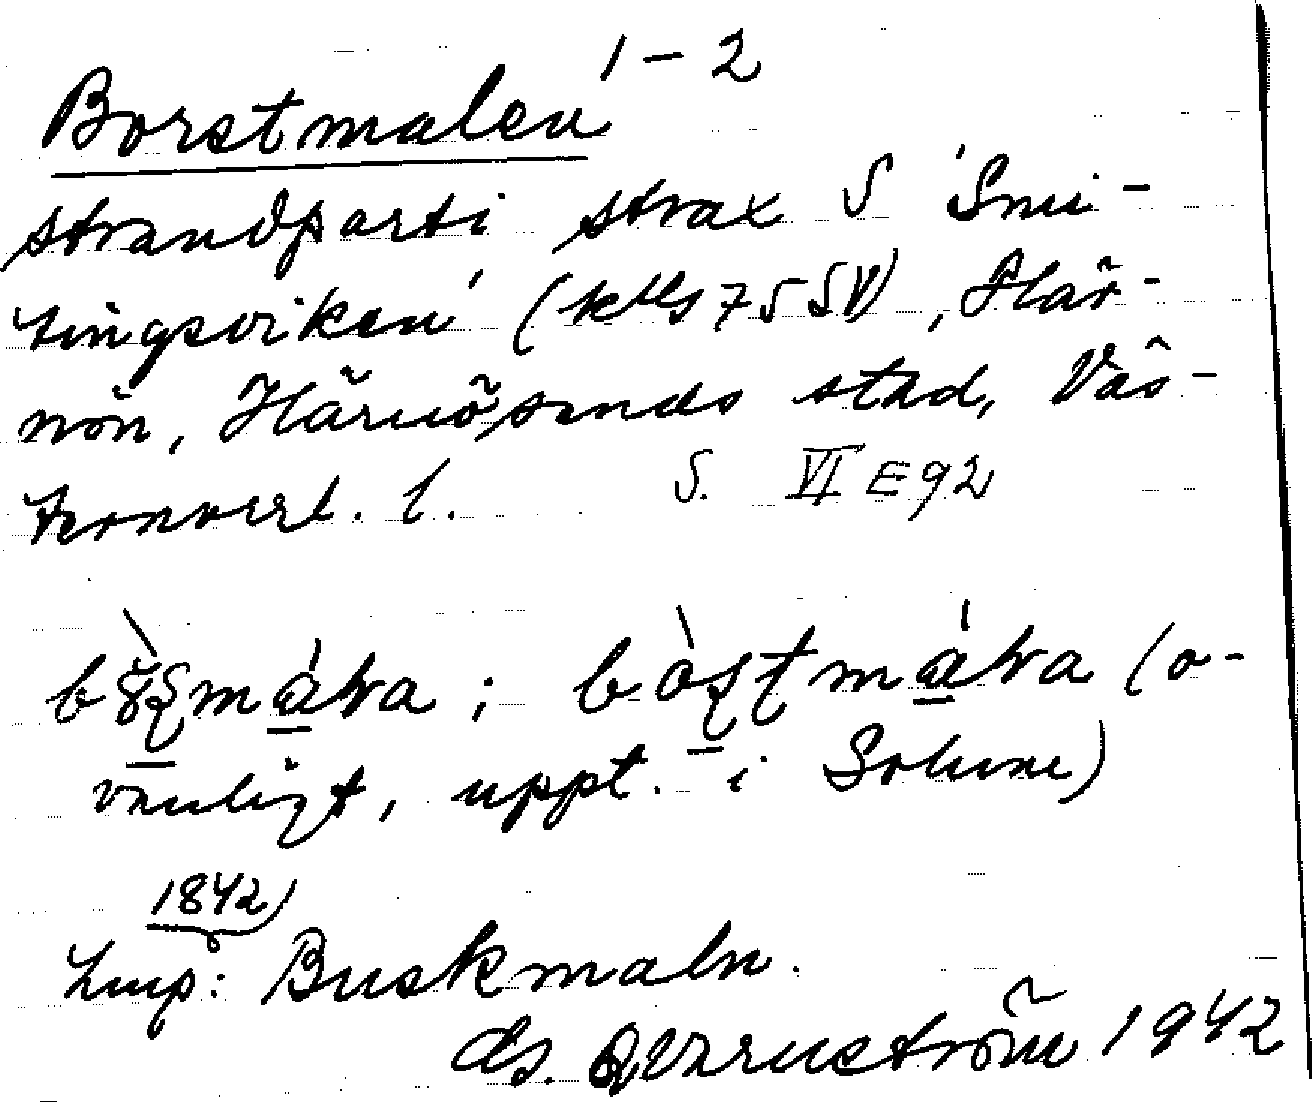 Borstmalen 1-2
strandparti strax S 'Smi-
tingsviken' (ktbl 75 SV), Här-
nön, Härnösands stad, Väs-
ternorrl. l. S. VI E 92
(o-
vanligt, uppt. i Solum)
1842
Lmp: Buskmaln.
ds. Qvarnström 1942